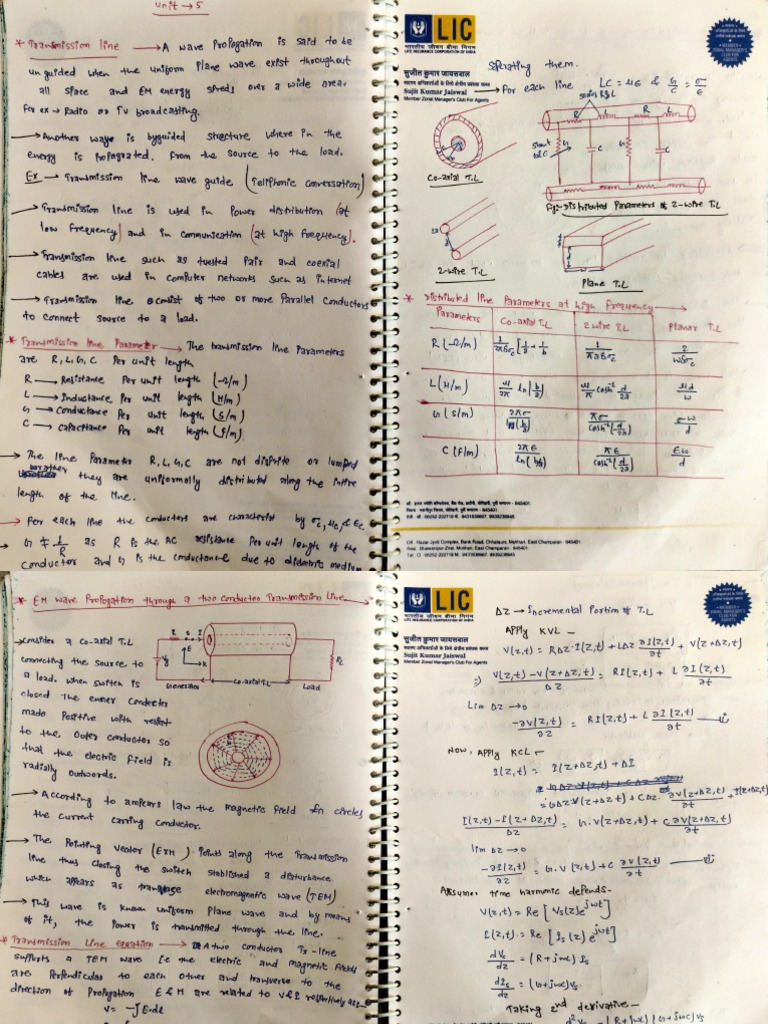 Unit → 5
* Transmission line → A wave Propogation is said to be
unguided when the uniform Plane wave exist throughout
all space and EM energy spreds over a wide area.
for ex → Radio or TV broadcasting.
→ Another waye is byguided structure where in the
energy is Propagrated. from the source to the load.
Ex → Transmission line wave guide (Telliphonic conversation)
→ Transmission line is used in Power distribution (at
low frequency) and in communication (at high frequency).
→ Transmission line such as twisted Pair and coexial
cables are used in computer networks such as internet
→ Transmission line consist of two or more Parallel conductors
to connect source to a load.
* Transmission line Parameter → The transmission line Parameters
are R, L, G, C Per unit length
R → Resistance Per unit length (Ω/m)
L → Inductance Per unit length (H/m)
G → Conductance Per unit length (S/m)
C → Capacitance Per unit length (F/m)
→ The line Parameter R, L, G, C are not disprite or lumped
brather they are uniformally distributed along the intire
length of the line.
→ For each line the conductors are characterist by σc, μc, & εc
→ G ≠ 1/R as R is the AC resistance Per unit length of the
conductor and G is the conductance due to dielectric medium
LIC
भारतीय जीवन बीमा निगम
LIFE INSURANCE CORPORATION OF INDIA
सुजीत कुमार जायसवाल
Sujit Kumar Jaiswal
Member Zonal Manager's Club For Agents
MEMBER ZONAL MANAGER'S CLUB FOR AGENTS
seperating them.
→ For each line LC = με & G/C = σ/ε
series R & L
R L R L
shunt G & C
G C G C
Co-axial T.L
Fig:- Distributed Parameters of 2-wire T.L
2-wire T.L
Plane T.L
* Distributed line Parameters at high frequency →
Parameters Co-axial T.L 2 wire T.L Planar T.L
R (Ω/m) 1/2πδσc [1/a + 1/b] 1/πaδσc 2/wδσc
L (H/m) μ/2π ln(b/a) μ/π cosh⁻¹ d/2a μd/w
G (S/m) 2πσ/ln(b/a) πσ/cosh⁻¹(d/2a) σw/d
C (F/m) 2πε/ln(b/a) πε/cosh⁻¹(d/2a) εw/d
Off. Hazar Jyoti Complex, Bank Road, Chhatauni, Motihari, East Champaran - 845401.
* EM wave Propogation through a two conductor Transmission Line →
→ Consider a Co-axial T.L
connecting the source to
a load. when switch is
closed The enner conductor
made Positive with respect
to the outer conductor so
that the electric field is
radially outwords.
Vg
E
RL
Generator Co-axial T.L Load
→ According to ampears law the magnetic field encircles
the current carring conductor.
→ The Pointing vector (E×H) Points along the Transmission
line thus closing the switch stablished a disturbance
which appears as transverse electromagnetic wave (TEM)
→ This wave is known uniform Plane wave and by means
of it, the Power is transmitted through the line.
* Transmission Line equation → A two conductor Tx-line
supports a TEM wave i.e the electric and magnetic fields
are Perpendicular to each other and transverse to the
direction of Propogation E & H are related to V & I respectively as:-
V = -∫ E·dl
LIC
भारतीय जीवन बीमा निगम
LIFE INSURANCE CORPORATION OF INDIA
सुजीत कुमार जायसवाल
Sujit Kumar Jaiswal
Member Zonal Manager's Club For Agents
MEMBER ZONAL MANAGER'S CLUB FOR AGENTS
ΔZ → Incremental Portion of T.L
Apply KVL –
V(z,t) = RΔz·I(z,t) + LΔz ∂I(z,t)/∂t + V(z+Δz,t)
⇒ V(z,t) - V(z+Δz,t)/Δz = RI(z,t) + L ∂I(z,t)/∂t
Lim Δz → 0
-∂V(z,t)/∂z = RI(z,t) + L ∂I(z,t)/∂t — (i)
Now, Apply KCL –
I(z,t) = I(z+Δz,t) + ΔI
= GΔz·V(z+Δz,t) + CΔz· ∂V(z+Δz,t)/∂t + I(z+Δz,t)
I(z,t) - I(z+Δz,t)/Δz = G·V(z+Δz,t) + C ∂V(z+Δz,t)/∂t
lim Δz → 0
-∂I(z,t)/∂z = G·V(z,t) + C ∂V(z,t)/∂t — (ii)
Assume time harmonic depends-
V(z,t) = Re [Vs(z)e^jωt]
I(z,t) = Re [Is(z) e^jωt]
dVs/dz = (R + jωL) Is
dIs/dz = (G + jωC) Vs
Taking 2nd derivative –